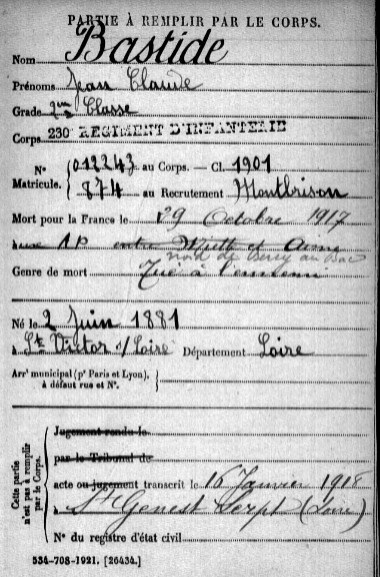 PARTIE À REMPLIR PAR LE CORPS.
Nom Bastide
Prénoms Jean Claude
Grade 2me Classe
Corps 230 REGIMENT D'INFANTERIE
N° Matricule. { 012243 au Corps. — Cl. 1901
874 au Recrutement Montbrison
Mort pour la France le 29 Octobre 1917
à une AP entre et Aisne
nord de Berry au Bac
Genre de mort Tué à l'ennemi
Né le 2 Juin 1881
à St Victor s/ Loire Département Loire
Arrt municipal (pr Paris et Lyon), à défaut rue et N°. {
Cette partie n'est pas à remplir par le Corps. {
Jugement rendu le
par le Tribunal de
acte ou jugement transcrit le 16 Janvier 1918
à St Genest Lerpt (Loire)
N° du registre d'état civil
534-708-1921. [26434.]